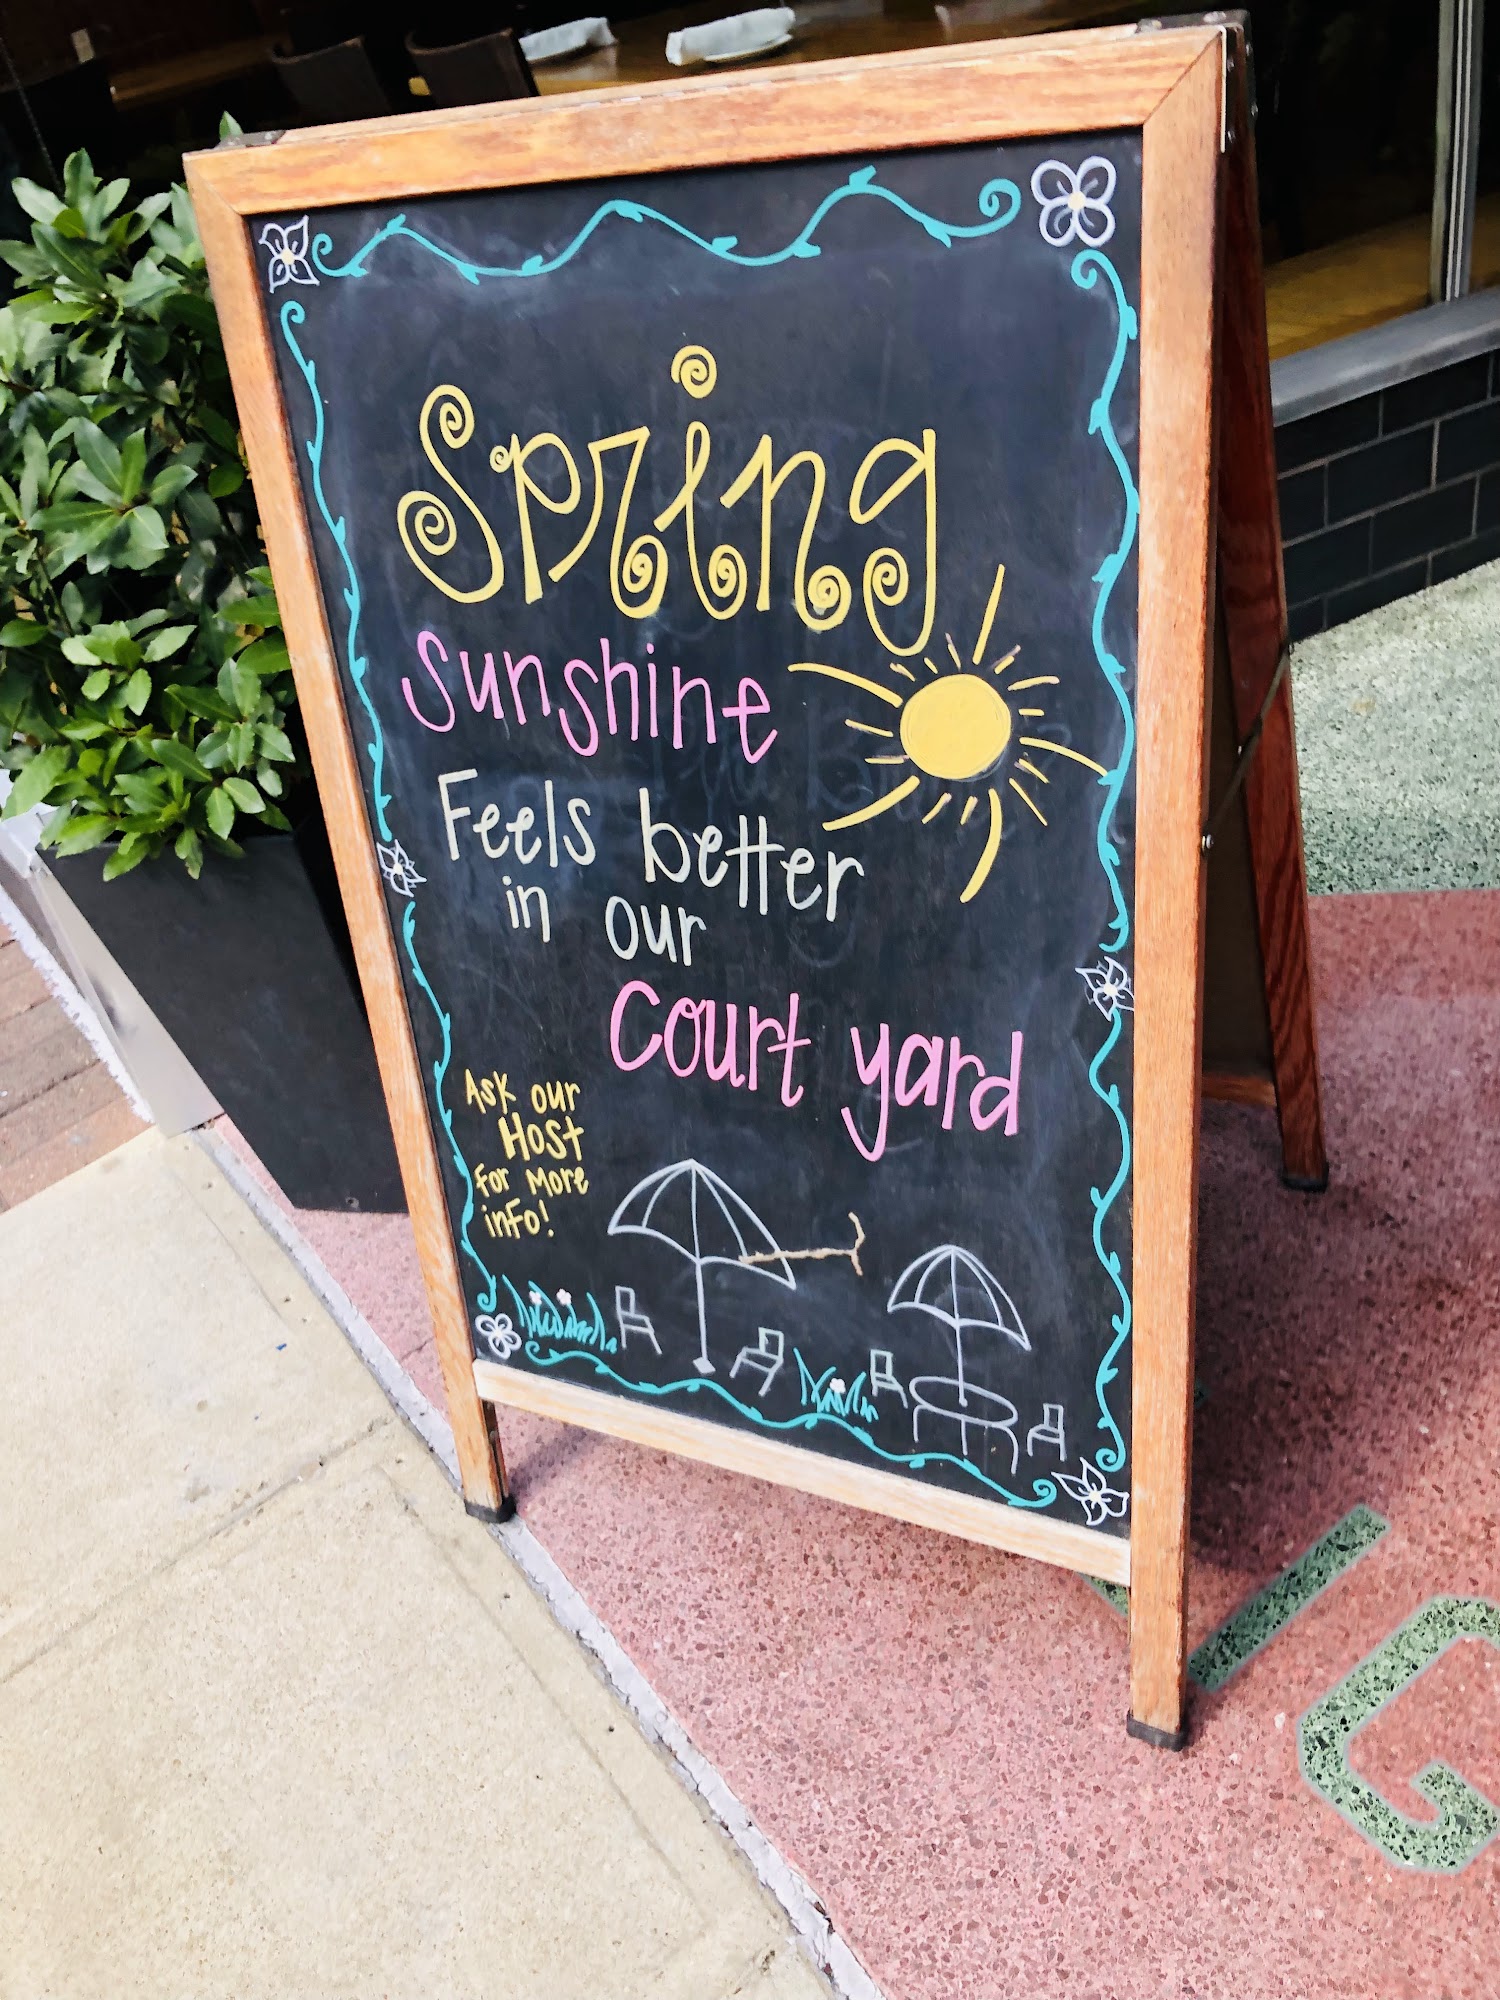 Spring
Sunshine
Feels better
in our
Court yard
Ask our
Host
For More
inFo!
G